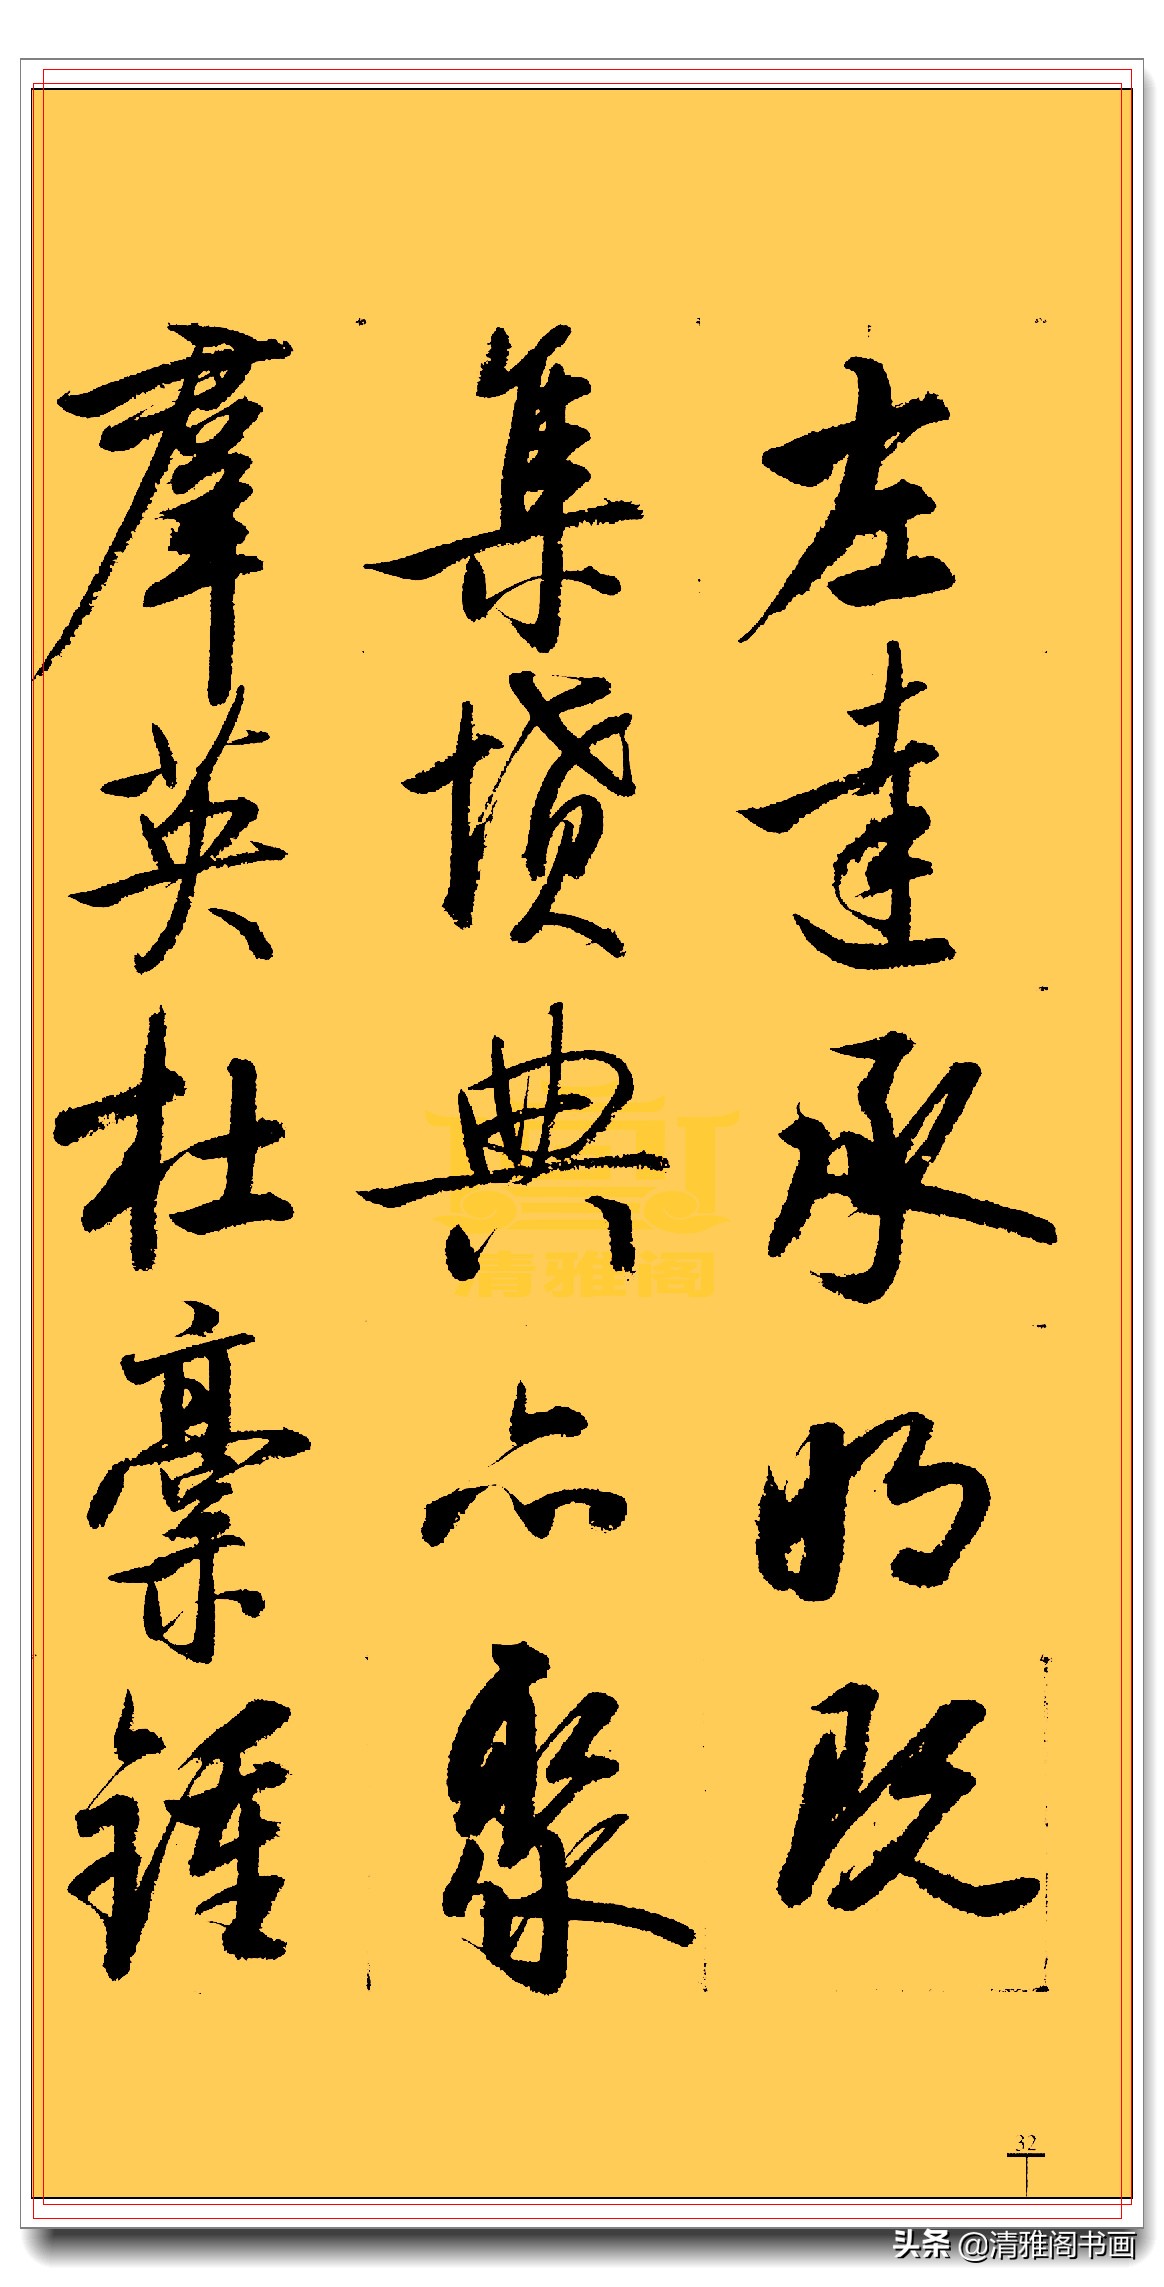 左達承明既
集墳典亦聚
群英杜稾鍾
清雅阁
32
头条 @清雅阁书画